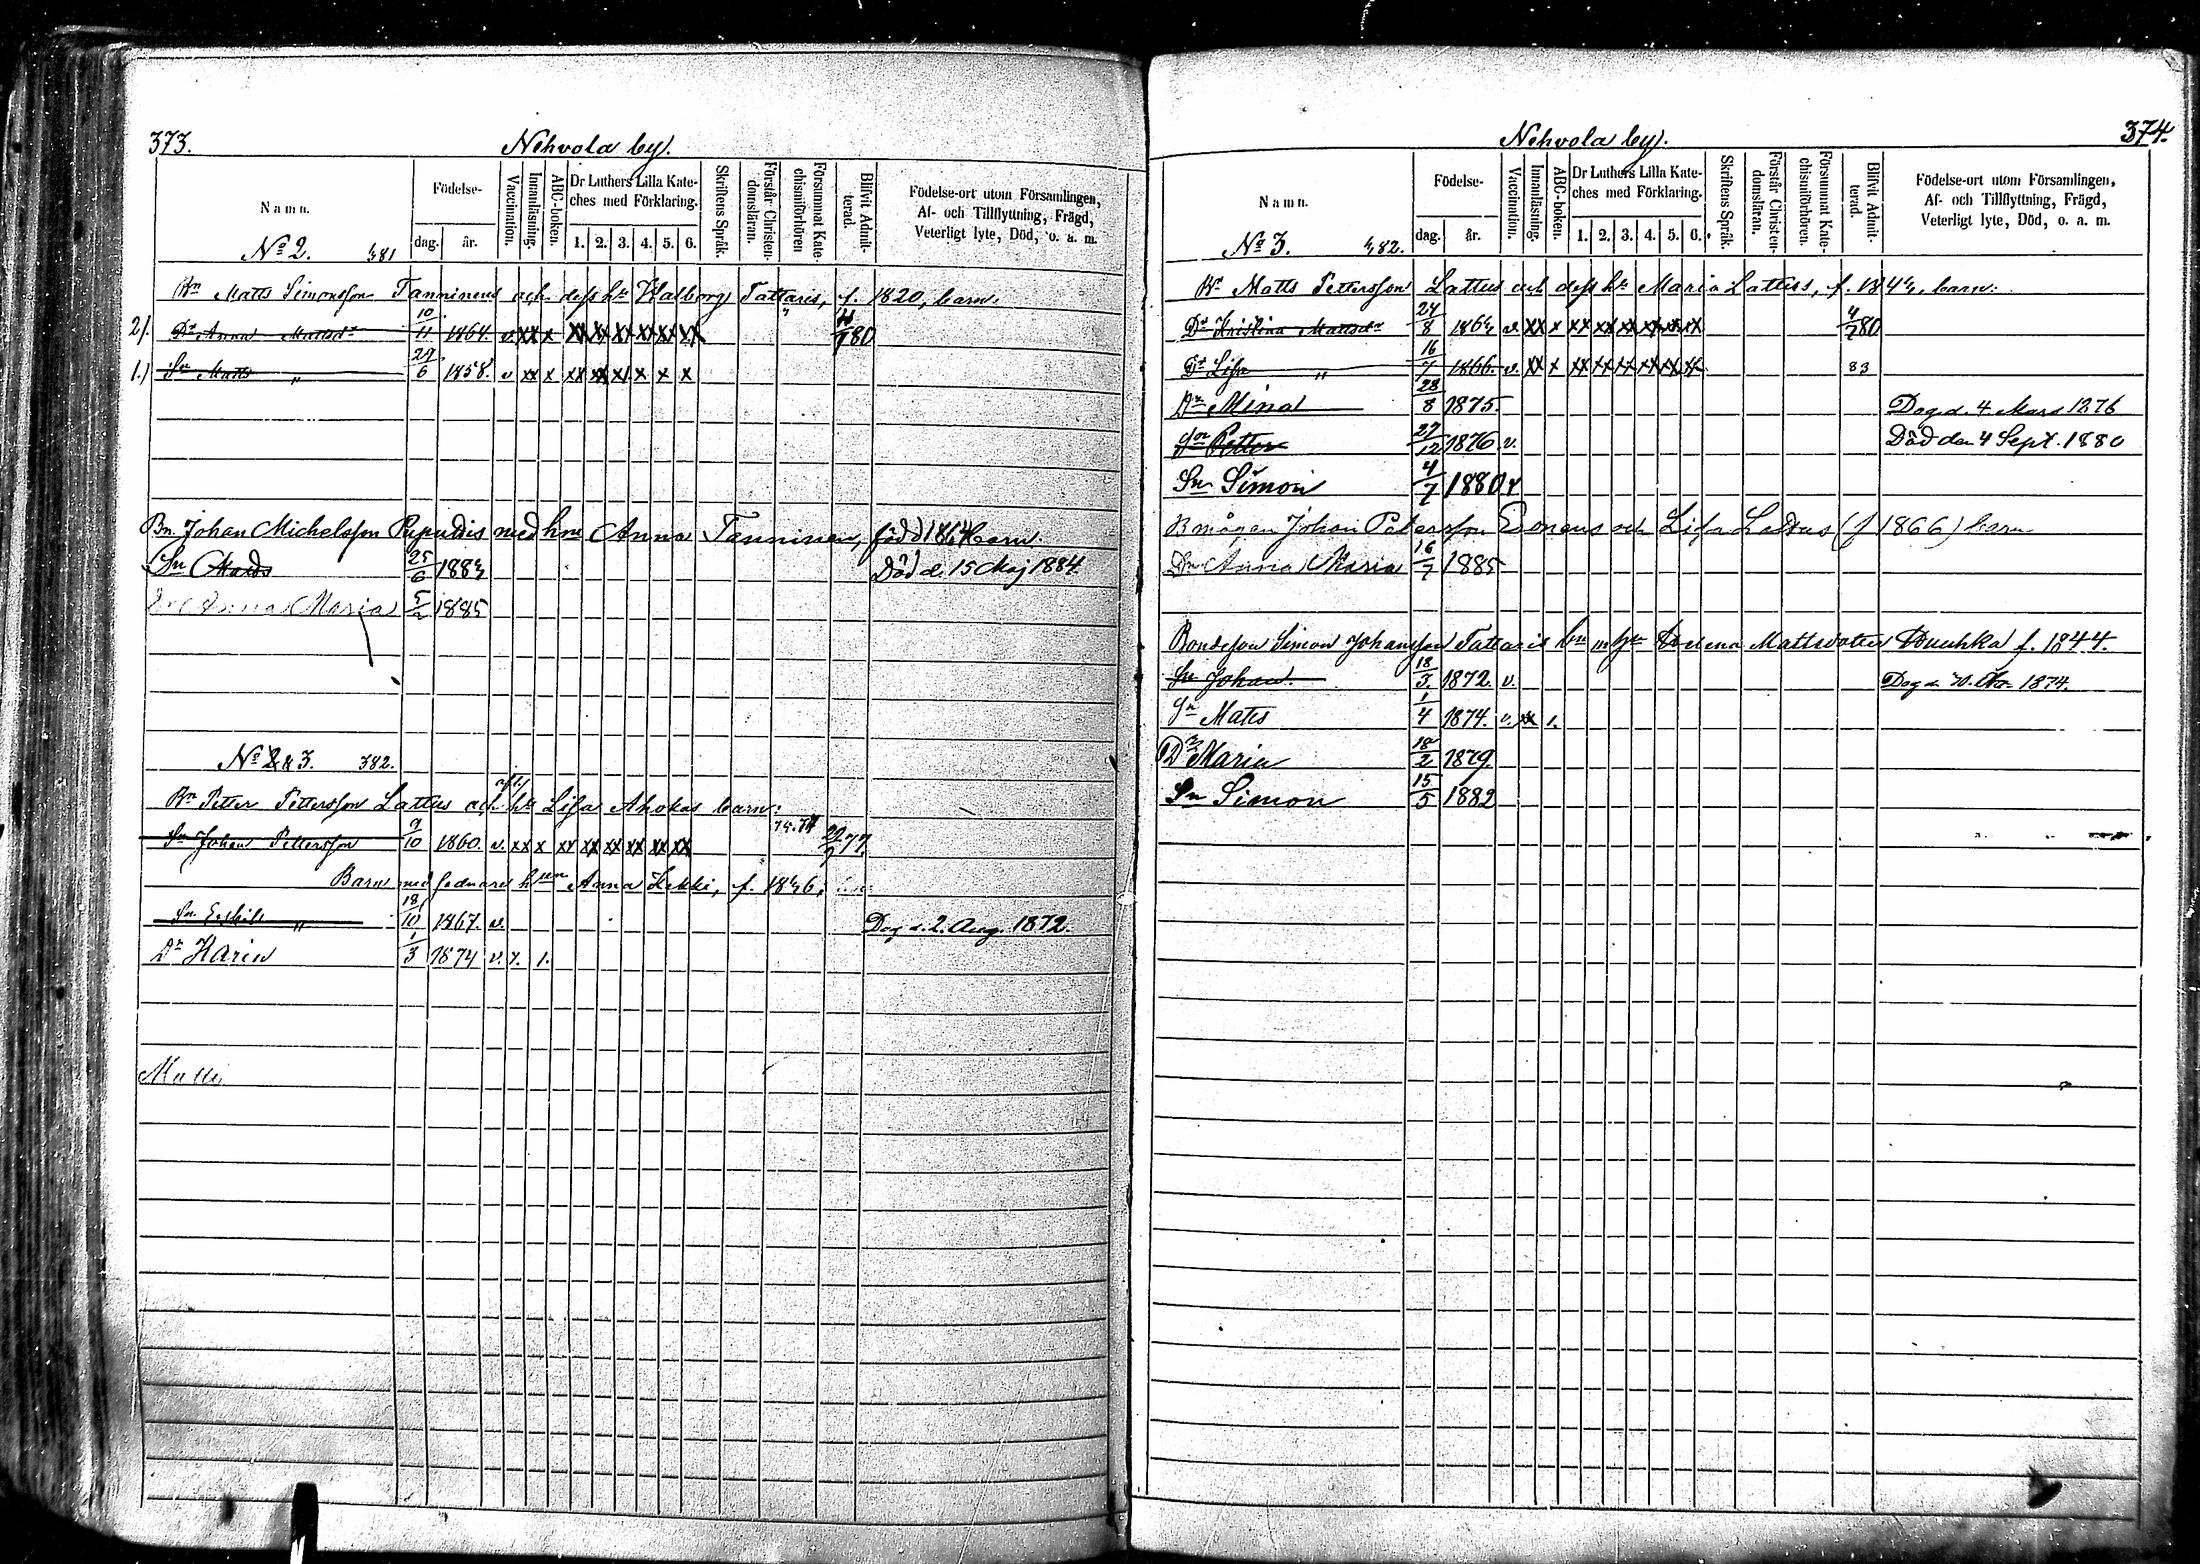 373.
Nehvola by.
Namn.
Födelse-
dag. år.
Vaccination.
Innanläsning.
ABC-boken.
Dr Luthers Lilla Kate-
ches med Förklaring.
1. 2. 3. 4. 5. 6.
Skriftens Språk.
Förstår Christen-
domsläran.
Försummat Kate-
chismiförhören
Blifvit Admit-
terad.
Födelse-ort utom Församlingen,
Af- och Tillflyttning, Frägd,
Veterligt lyte, Död, o. a. m.
No 2. 381
Bn Matts Simonsson Tanninens och dess hu Walborg Tattaris, f. 1820, barn.
2). Dr Anna Mattsdr 10/11 1864. v. xx x xx xx xx xx xx xx 80
1.) Sn Matts " 29/6 1858. v xx x xx xx xx x x x
Bn. Johan Michelsson Puputtis med hu Anna Tanninen, född 1864 barn.
Sn Matts 25/6 1883 Död d. 15 Maj 1884.
Dr Anna Maria 5/2 1885
No 2 & 3. 382.
Bn Petter Pettersson Lattus och hu Lisa Ahokas barn:
Sn Johan Pettersson 9/10 1860. v. xx x xx xx xx xx xx xx 75. 74 77
Barn med sednare hun Anna Kekki, f. 1846,
Sn Eskil " 18/10 1867. v. Dog d. 2. Aug. 1872.
Dr Karin 1/3 1874 v. 7. 1.
Matts
374.
Nehvola by.
Namn.
Födelse-
dag. år.
Vaccination.
Innanläsning.
ABC-boken.
Dr Luthers Lilla Kate-
ches med Förklaring.
1. 2. 3. 4. 5. 6.
Skriftens Språk.
Förstår Christen-
domsläran.
Försummat Kate-
chismiförhören.
Blifvit Admit-
terad.
Födelse-ort utom Församlingen,
Af- och Tillflyttning, Frägd,
Veterligt lyte, Död, o. a. m.
No 3. 382.
Bn Matts Pettersson Lattus och dess hu Maria Lattus, f. 1844, barn:
Dr Kristina Mattsdr 24/8 1864 v. xx x xx xx xx xx xx xx 4/7 80
Dr Lisa " 16/7 1866. v. xx x xx xx xx xx xx xx 83
Dr Mina 28/8 1875. Dog d. 4. Mars 1876
Sn Petter 27/12 1876. v. Död den 4 Sept. 1880
Sn Simon 4/7 1880 v
B mågen Johan Petersson Eronens och Lisa Lattus (f 1866) barn
Dr Anna Maria 16/7 1885
Bondeson Simon Johansson Tattaris bn m hu Helena Mattsdotter Wauhka f. 1844.
Sn Johan. 18/3. 1872. v. Dog d. 1874.
Sn Matts 1/4 1874. v. xx 1.
Dr Maria 18/2 1879
Sn Simon 15/5 1882